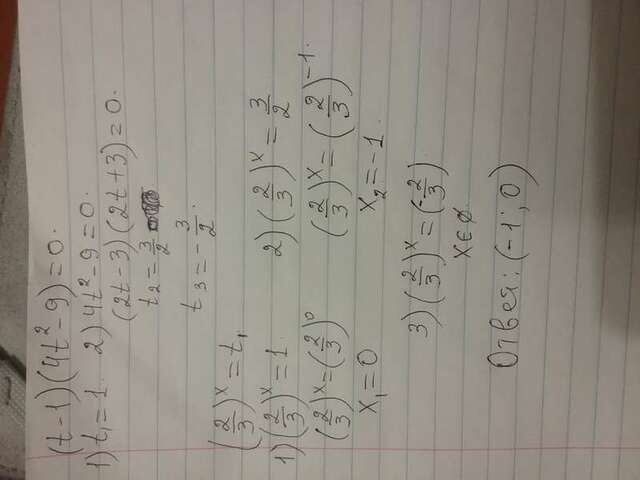 (t-1)(4t²-9)=0.
1) t₁=1. 2) 4t²-9=0.
(2t-3)(2t+3)=0.
t₂=3/2
t₃=-3/2
(2/3)ˣ=t₁
1) (2/3)ˣ=1. 2) (2/3)ˣ=3/2
(2/3)ˣ=(2/3)⁰ (2/3)ˣ=(2/3)⁻¹.
x₁=0 x₂=-1.
3) (2/3)ˣ=(-2/3)
x∈∅.
Ответ: (-1; 0)